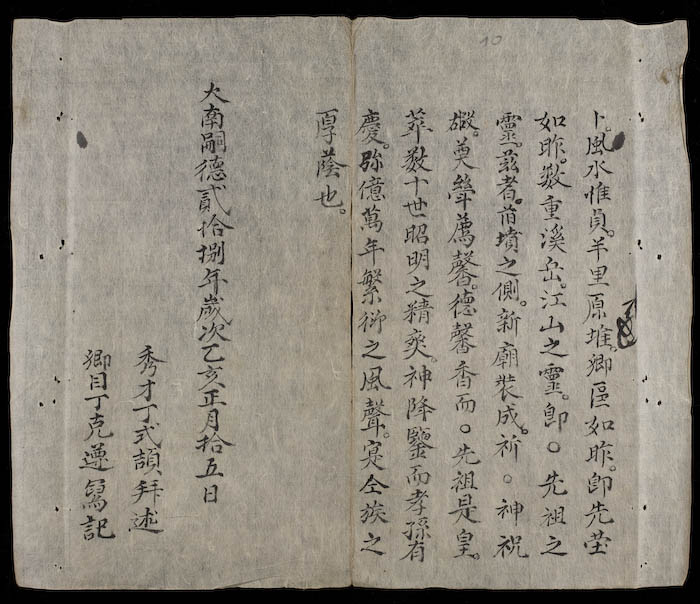 10
卜。風水惟貞。半里原堆。鄉邑如昨。卽先塋
如昨。数重溪岳。江山之靈。卽○先祖之
靈。兹者。首墳之側。新廟裝成。祈○神祝
嘏。奠斝薦馨。德馨香而○先祖是皇。
萃数十世昭明之精爽。神降鑒而孝孫有
慶。弥億萬年繁衍之風聲。寔仝族之
厚蔭也。
大南嗣德貳拾捌年歲次乙亥正月拾五日
秀才丁式頡拜述
鄉目丁克遵寫記